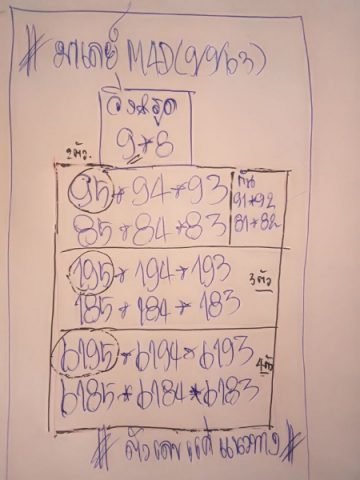 # มาเลย์ M4D (9/9/63) #
วิ่งรูด
9*8
2ตัว.
95*94*93
85*84*83
กัน
91*92
81*82
195*194*193
185*184*183
3ตัว
6195*6194*6193
6185*6184*6183
4ตัว
# ตัวเลขแค่แนวทาง #